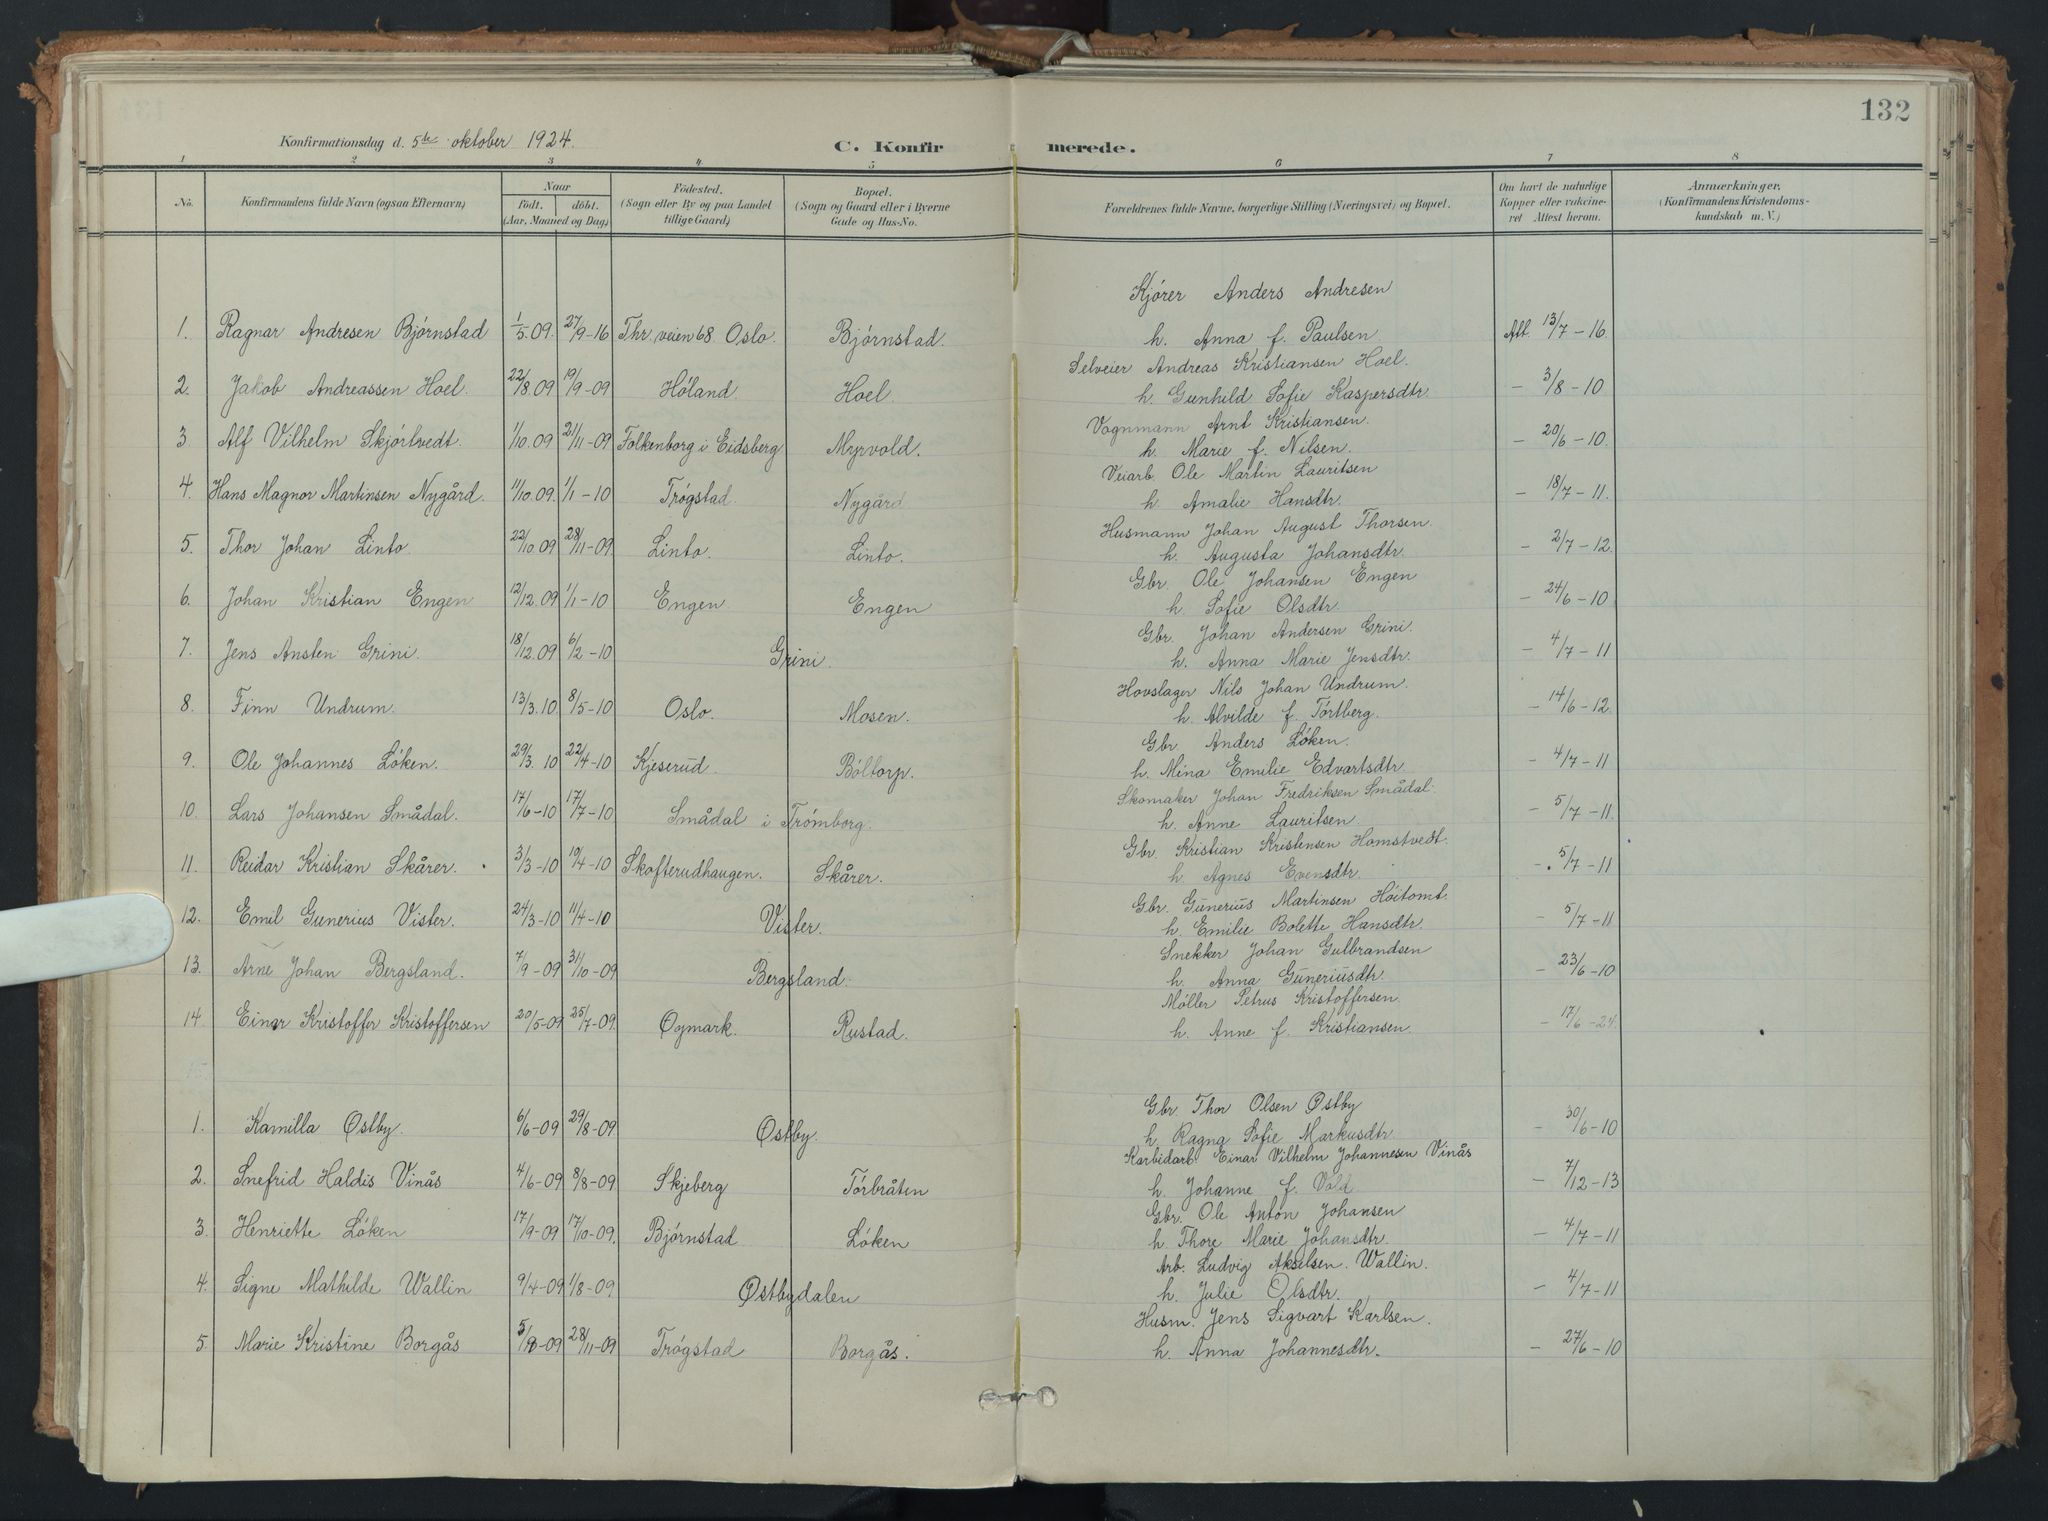 132
Konfirmationsdag d. 5te oktober 1924.
C. Konfirmerede.
1 2 3 4 5 6 7 8
No. Konfirmandens fulde Navn (ogsaa Efternavn). Naar födt. döbt. (Aar, Maaned og Dag) Födested. (Sogn eller By og paa Landet tillige Gaard) Bopæl. (Sogn og Gaard eller i Byerne Gade og Hus-No. Forældrenes fulde Navne, borgerlige Stilling (Næringsvei) og Bopæl. Om havt de naturlige Kopper eller vakcineret Attest herom. Anmærkninger. (Konfirmandens Kristendomskundskab m. V.)
Kjører Anders Andresen
1. Ragnar Andresen Bjørnstad 1/5.09. 27/9-16 Thr. veien 68 Oslo. Bjørnstad. h. Anna f. Paulsen Att. 13/7-16
Selveier Andreas Kristiansen Hoel.
2. Jakob Andreassen Hoel. 22/8.09 19/9-09 Høland. Hoel. h. Gunhild Sofie Kaspersdtr. - 3/8-10
Vognmann Arnt Kristiansen.
3. Alf Vilhelm Skjørtvedt. 1/10.09 21/11-09 Folkenborg i Eidsberg Myrvold. h. Marie f. Nilsen. - 20/6-10.
Veiarb. Ole Martin Lauritsen
4. Hans Magnor Martinsen Nygård. 11/10.09. 1/1-10 Trøgstad. Nygård h. Amalie Hansdtr. - 18/7-11.
Husmann Johan August Thorsen.
5. Thor Johan Linto 22/10.09 28/11-09 Linto. Linto. h. Augusta Johansdtr. - 2/7-12.
Gbr. Ole Johansen Engen
6. Johan Kristian Engen 12/12.09 1/1-10 Engen. Engen h. Sofie Olsdtr. - 24/6-10
Gbr. Johan Andersen Grini.
7. Jens Ansten Grini. 18/12.09 6/2-10 Grini. h. Anna Marie Jensdtr. - 4/7-11
Hovslager Nils Johan Undrum.
8. Finn Undrum. 13/3.10. 8/5-10 Oslo. Mosen. h. Alvilde f. Tørtberg. - 14/6-12.
Gbr. Anders Løken.
9. Ole Johannes Løken. 29/3.10 22/4-10 Kjeserud. Bøltorp. h. Mina Emilie Edvartsdtr. - 4/7-11
Skomaker Johan Fredriksen Smådal.
10. Lars Johansen Smådal. 17/6-10 17/7-10 Smådal i Trømborg. h. Anne Lauritsen - 5/7-11.
Gbr. Kristian Kristensen Homstvedt.
11. Reidar Kristian Skårer. 3/3-10 19/4-10 Skofterudhaugen. Skårer. h. Agnes Evensdtr. - 5/7-11
Gbr. Gunerius Martinsen Høitomt.
12. Emil Gunerius Vister. 24/3-10 11/4-10 Vister. h. Emilie Bolette Hansdtr. - 5/7-11
Snekker Johan Gulbrandsen
13. Arne Johan Bergsland. 7/9-09 31/10-09 Bergsland. h. Anna Guneriusdtr. - 23/6-10
Møller Petrus Kristoffersen.
14. Einar Kristoffer Kristoffersen 20/5-09 25/7-09. Ogmark. Rustad. h. Anne f. Kristiansen. - 17/6-24.
15.
Gbr. Thor Olsen Østby
1. Kamilla Østby. 6/6-09 29/8-09. Østby. h. Ragna Sofie Markusdtr - 30/6-10
Karbidarb. Einar Vilhelm Johannesen Vinås
2. Snefrid Haldis Vinås 4/6-09 8/8-09 Skjeberg Tørbråten h. Johanne f. Vold. - 7/12-13
Gbr. Ole Anton Johansen
3. Henriette Løken 17/9-09 17/10-09. Bjørnstad Løken h. Thore Marie Johansdtr. - 4/7-11
Arb. Ludvig Akselsen. Wallin.
4. Signe Mathilde Wallin 9/4-09 1/8-09. Østbydalen h. Julie Olsdtr. - 4/7-11
Husm. Jens Sigvart Karlsen.
5. Marie Kristine Borgås 28/11-09 Trøgstad Borgås. h. Anna Johannesdtr. - 27/6-10